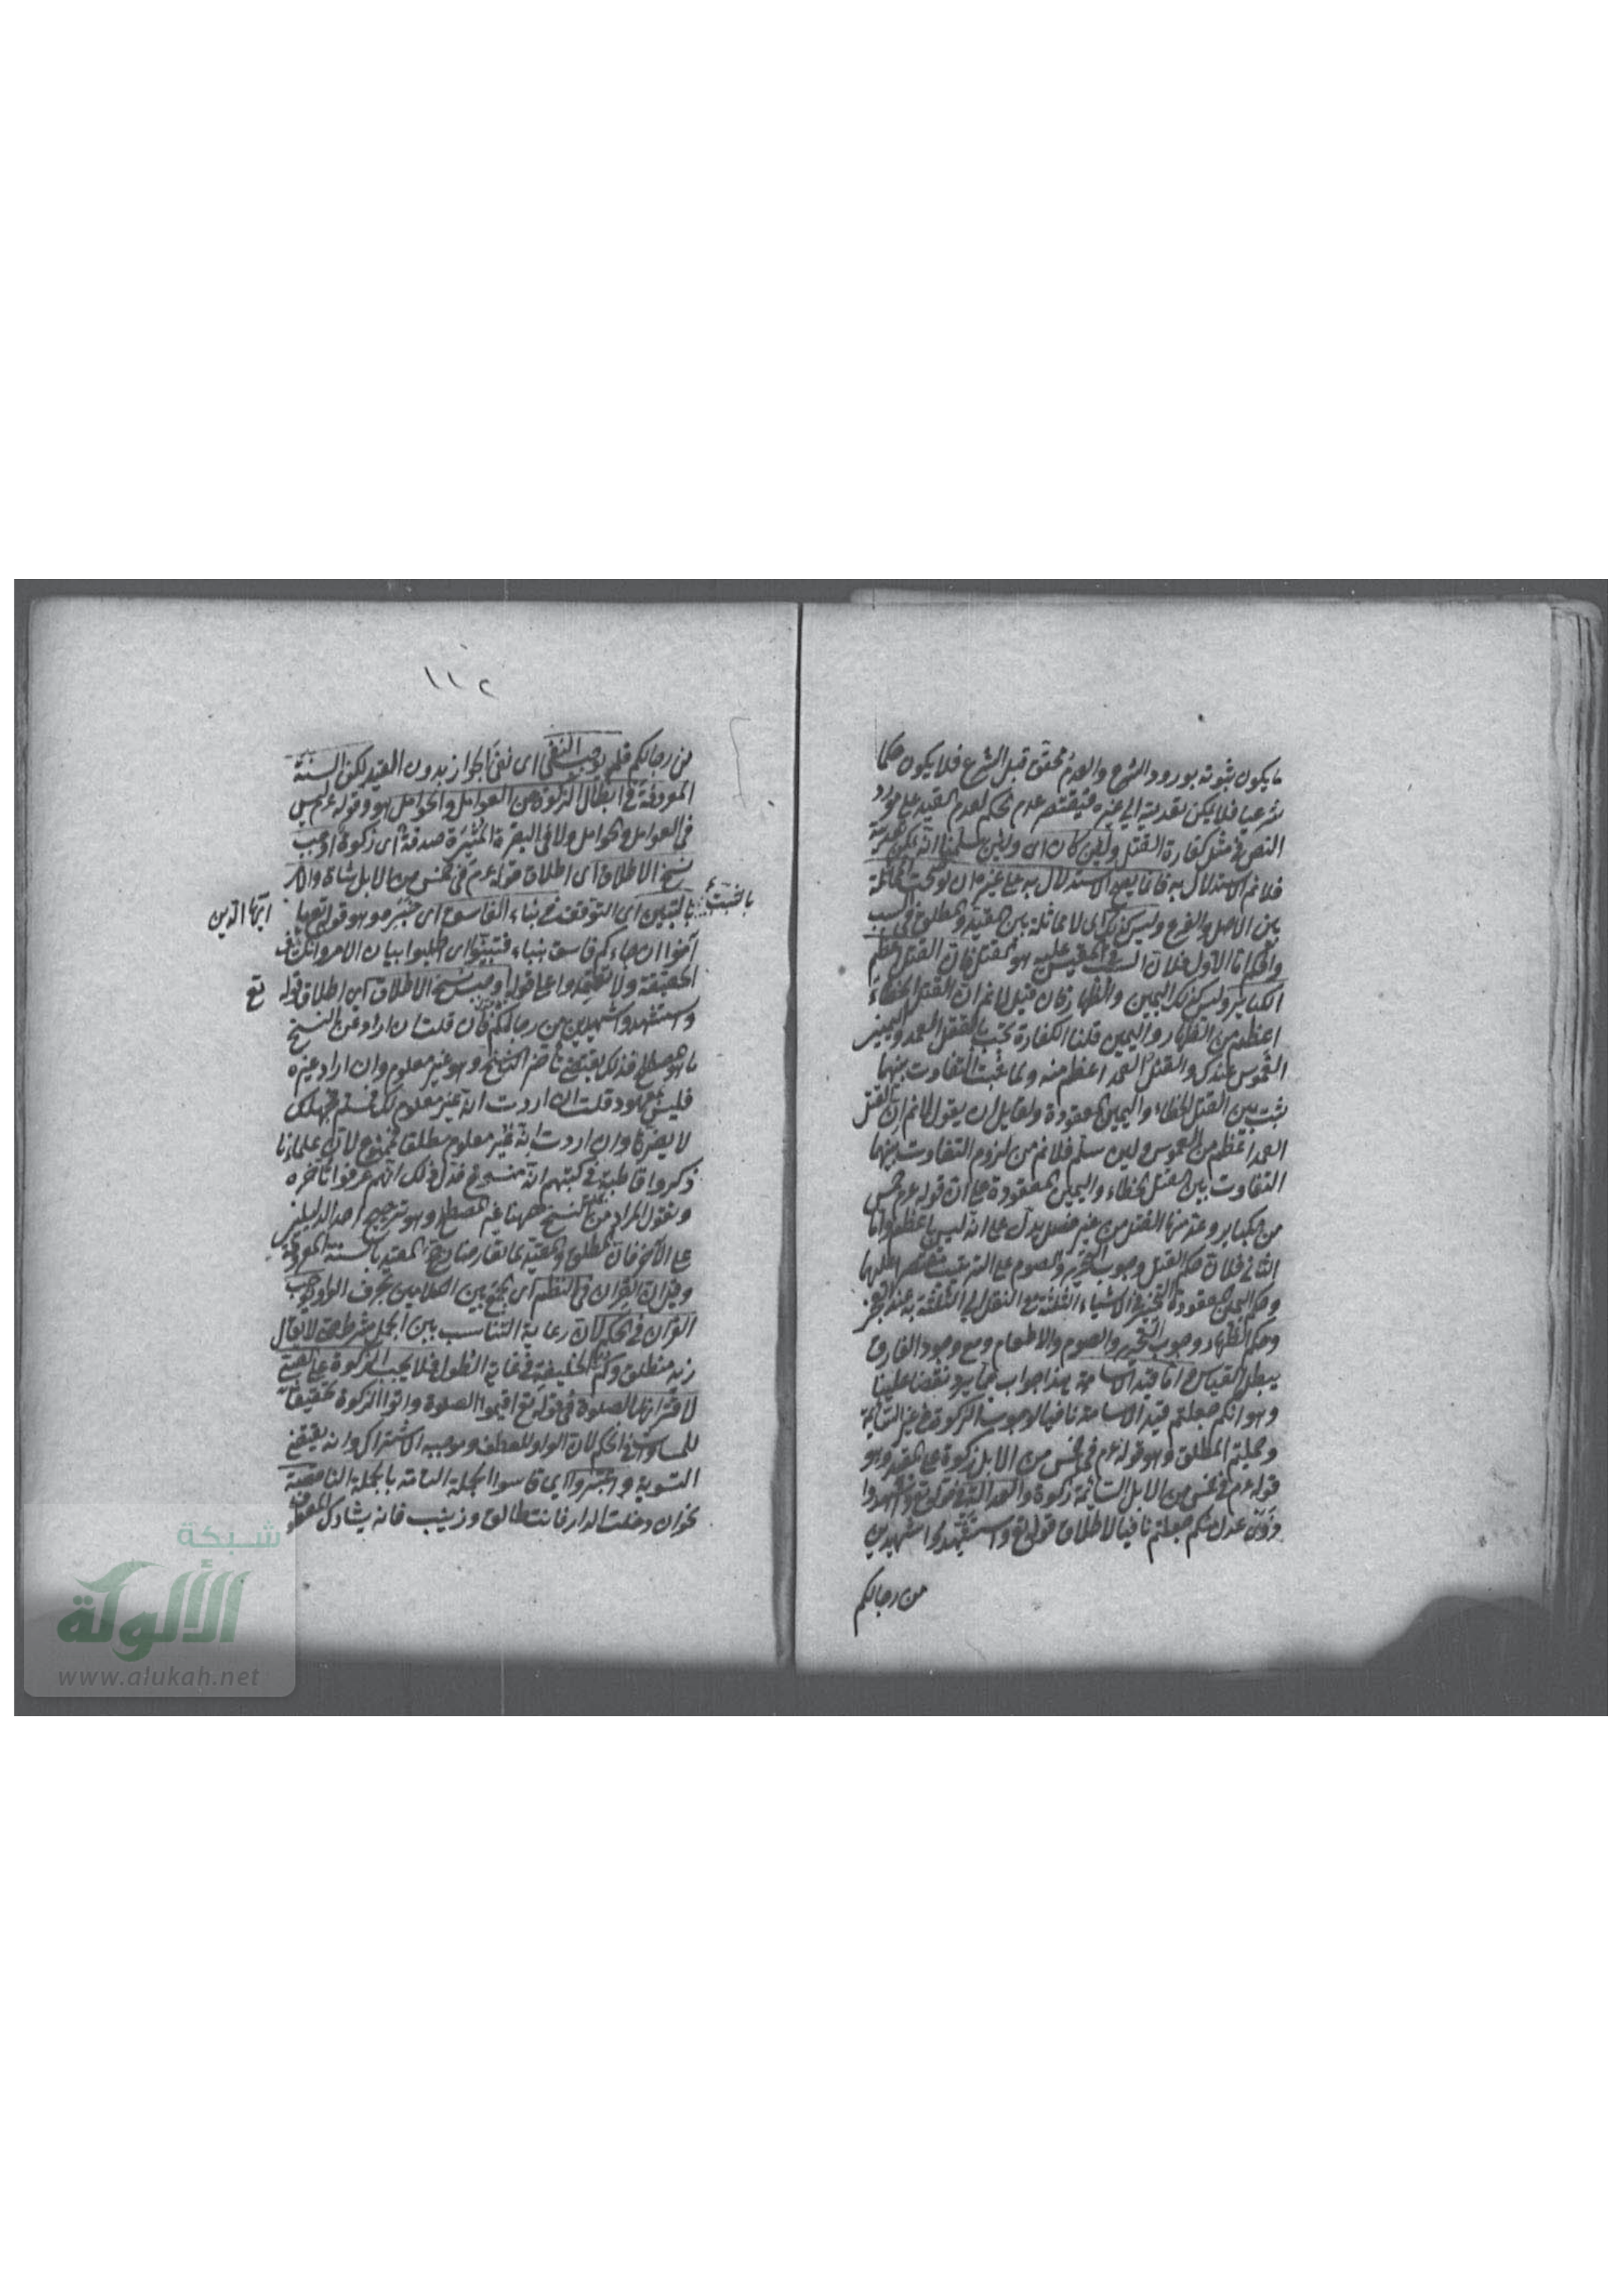 ما يكون ثبوته بورود الشرع والعدم محقق قبل الشرع فلا يكون حكما
شرعيا فلا يمكن تعديته الى غيره فيقتصر عدم الحكم لعدم القيد على مورد
النص في مثل كفارة القتل ولئن كان اى ولئن سلمنا انه يمكن
فلا نم الاستدلال به فانما يصح الاستدلال به على غيره ان لو صحت المماثلة
بين الاصل والفرع وليس كذلك اى لا مماثلة بين المقيد والمطلق في السبب
والحكم اما الاول فلان السبب في المقيس عليه هو القتل فان القتل اعظم
الكبائر وليس كذلك اليمين والظهار فان قيل لا نم ان القتل الخطاء
اعظم من الظهار واليمين قلنا الكفارة تجب بالقتل العمد ويمين
الغموس عندك والقتل العمد اعظم منه ولما ثبت التفاوت بينهما
ثبت بين القتل الخطاء واليمين المعقودة ولقايل ان يقول لا نم ان القتل
العمد اعظم من الغموس ولئن سلم فلا نم من لزوم التفاوت بينهما
التفاوت بين القتل الخطاء واليمين المعقودة على ان قوله عم خمس
من الكبائر وعد منها القتل من غير فصل يدل على انه ليس باعظم واما
الثانى فلان حكم القتل وجوب التحرير والصوم على الترتيب مقتصر عليهما
وحكم اليمين المعقودة التخيير في الاشياء الثلثة مع النقل الى الثلثة به عند العجز
وحكم الظهار وجوب التحرير والصوم والاطعام ومع وجود الفارق
يبطل القياس فاما قيد الاسامة هذا جواب عما يرد نقضا علينا
وهو انكم جعلتم قيد الاسامة نافيا لوجوب الزكوة في غير السائمة
وحملتم المطلق وهو قوله عم في خمس من الابل زكوة على المقيد وهو
قوله عم في خمس من الابل السائمة زكوة والعدالة في قوله تع واشهدوا
ذوى عدل منكم جعلتم نافيا لاطلاق قوله تع واستشهدوا شهيدين
من رجالكم
١١٢
من رجالكم فلم يوجب النفى اى نفى الجواز بدون القيد لكن السنة
المعروفة في ابطال الزكوة عن العوامل والحوامل هو وقوله عم ليس
في العوامل والحوامل ولا في البقرة المثيرة صدقة اى زكوة اوجب
نسخ الاطلاق اى اطلاق قوله عم في خمس من الابل شاة والامر
بالتثبت
بالتبين اى التوقف في نباء الفاسق اى خبره وهو قوله تع يا
ايها الذين
آمنوا ان جاءكم فاسق بنباء فتبينوا اى اطلبوا بيان الامر وانكشاف
الحقيقة ولا تعتمدوا على قوله اوجب نسخ الاطلاق اى اطلاق قوله
تع
واستشهدوا شهيدين من رجالكم فان قلت ان اراد من النسخ
ما هو المصطلح فذلك يقتضى تأخر الناسخ وهو غير معلوم وان اراد غيره
فليس بمعهود قلت ان اردت انه غير معلوم لك فمسلم فجهلك
لا يضرنا وان اردت انه غير معلوم مطلقا فممنوع لان علماءنا
ذكروا قاطبة في كتبهم انه منسوخ فدل ذلك انهم عرفوا تأخره
ونقول المراد من النسخ ههنا غير المصطلح وهو ترجيح احد الدليلين
على الآخر فان المطلق والمقيد لما تعارضا رجح المقيد بالسنة المعروفة
وقيل ان القران في النظم اى الجمع بين الكلامين بحرف الواو يوجب
القران في الحكم لان رعاية التناسب بين الجمل شرط حتى لا يقال
زيد منطلق وكم الخليفة في غاية الطول فلا يجب الزكوة على الصبى
لاقترانها بالصلوة في قوله تع اقيموا الصلوة واتوا الزكوة تحقيقا
للمساواة في الحكم لان الواو للعطف وموجبه الاشتراك وانه يقتضى
التسوية واعتبروا اى قاسوا الجملة التامة بالجملة الناقصة
نحو ان دخلت الدار فانت طالق وزينب فانه يشارك المعطوف
شبكة
الألوكة
www.alukah.net